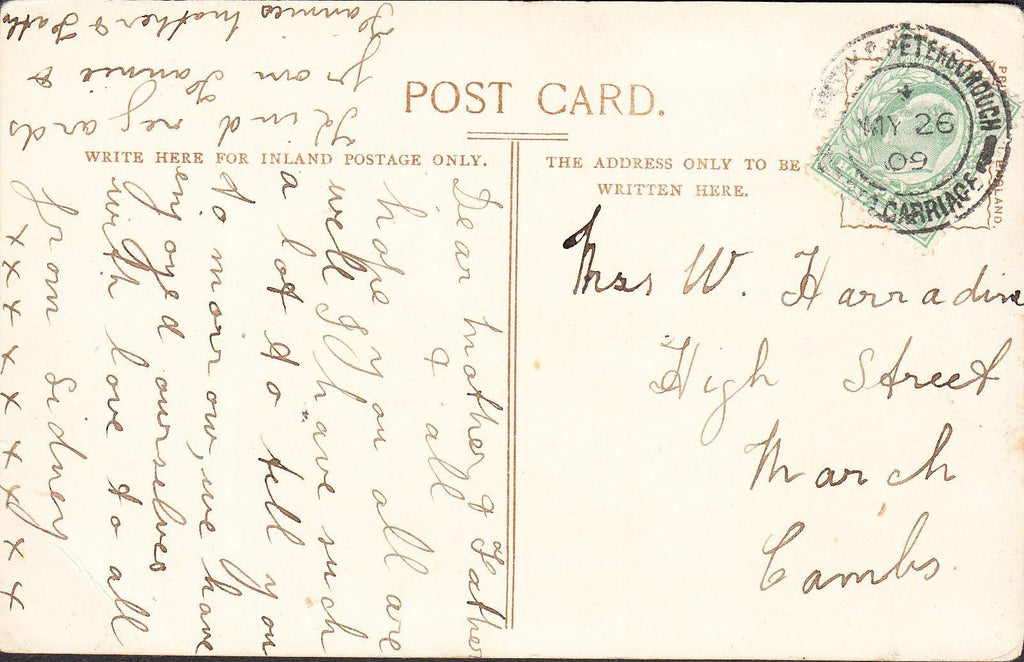 POST CARD.
WRITE HERE FOR INLAND POSTAGE ONLY.
THE ADDRESS ONLY TO BE
WRITTEN HERE.
PETERBOROUGH
MY 26
09
CARRIAGE
ENGLAND.
Mrs W. Harradine
High Street
March
Cambs.
Dear mother & Father
& all
hope you all are
well I have such
a lot to tell you
to morrow, we have
enjoyed ourselves
with love to all
from Sidney
x x x x x x x x x x
Kind regards
from Fannie &
Fannies mother & Fath